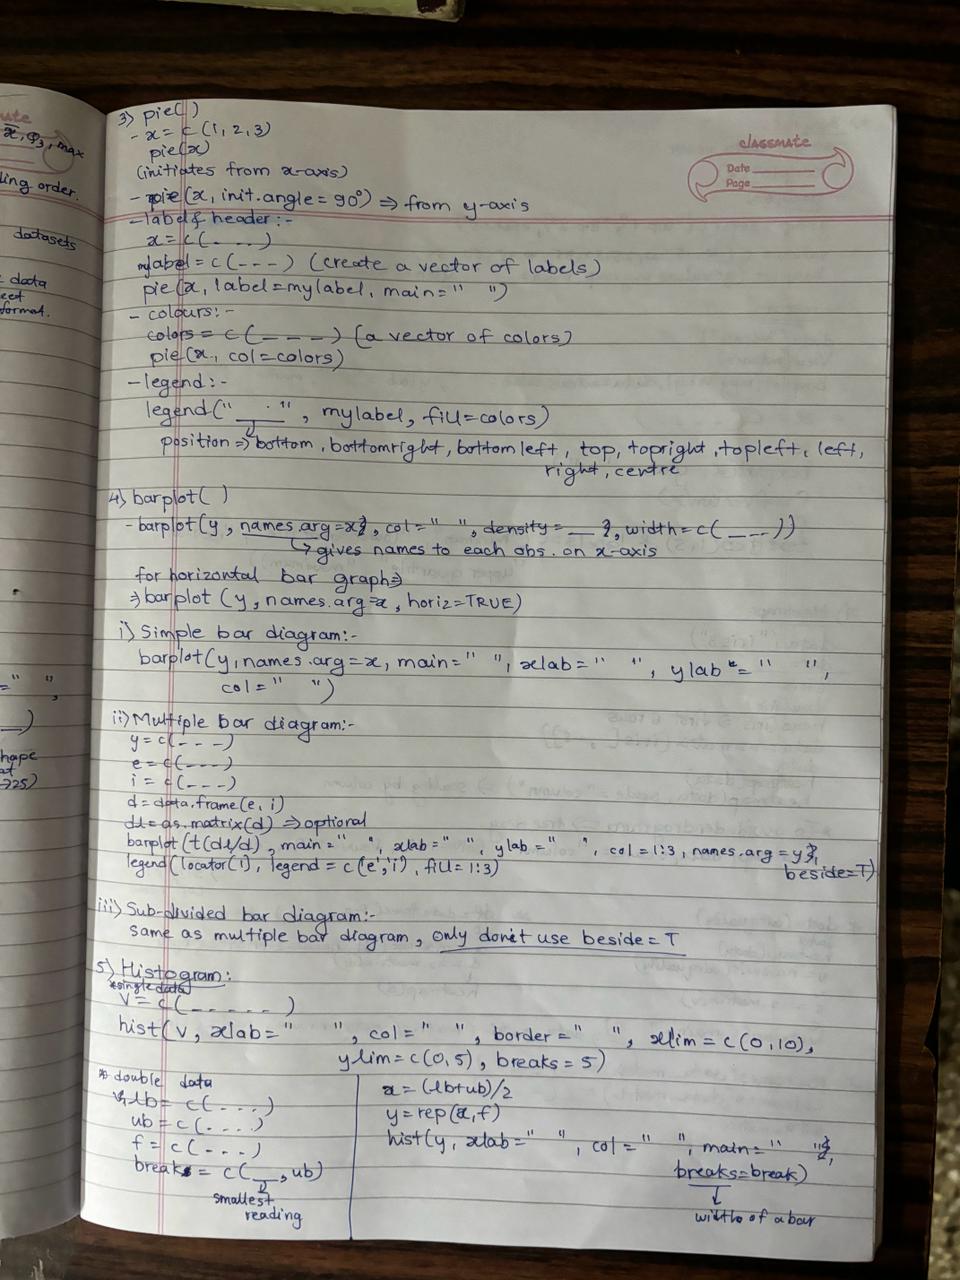 ute
x̄, Q3, max
ling order.
datasets
data
eet
format.
=" ",
hape
at
→25)
classmate
Date
Page
3) pie( )
- x = c (1, 2, 3)
pie(x)
(initiates from x-axis)
- pie (x, init.angle = 90°) ⇒ from y-axis
- label & header :-
x = c(- - - -)
mylabel = c(- - -) (create a vector of labels)
pie (x, label = mylabel, main = " ")
- colours :-
colors = c (- - - -) (a vector of colors)
pie (x, col = colors)
- legend :-
legend (" ___ ", mylabel, fill = colors)
position ⇒ bottom, bottomright, bottom left, top, topright, topleft, left,
right, centre
4) barplot( )
- barplot (y, names.arg = x}, col = " ", density = ___ }, width = c( _ _ - ))
↳ gives names to each obs. on x-axis
for horizontal bar graph ⇒
⇒ barplot (y, names.arg = x, horiz = TRUE)
i) Simple bar diagram :-
barplot (y, names.arg = x, main = " ", xlab = " ", ylab = " ",
col = " ")
ii) Multiple bar diagram :-
y = c(- - -)
e = c(- - - -)
i = c(- - -)
d = data.frame (e, i)
d1 = as.matrix (d) ⇒ optional
barplot (t(d1/d), main = " ", xlab = " ", ylab = " ", col = 1:3, names.arg = y},
beside = T)
legend (locator(1), legend = c ('e','i'), fill = 1:3)
iii) Sub-divided bar diagram :-
same as multiple bar diagram, only don't use beside = T
5) Histogram :
* single data
V = c( _ _ - - - )
hist (v, xlab = " ", col = " ", border = " ", xlim = c (0, 10),
ylim = c (0, 5), breaks = 5)
* double data
lb = c(- - - -)
ub = c (- - - -)
f = c (- - -)
breaks = c( __ , ub)
smallest
reading
x = (lb+ub)/2
y = rep (x, f)
hist (y, xlab = " ", col = " ", main = " "},
breaks = break)
width of a bar